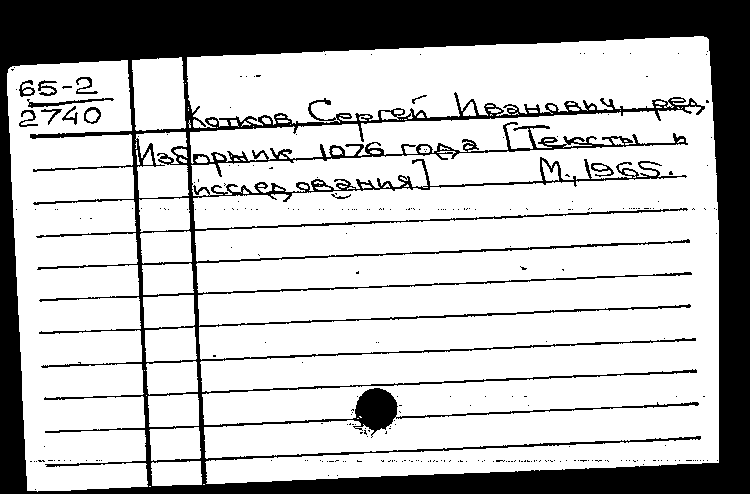 65-2
2740
Котков, Сергей Иванович, ред.
Изборник 1076 года [Тексты и
исследования] М., 1965.